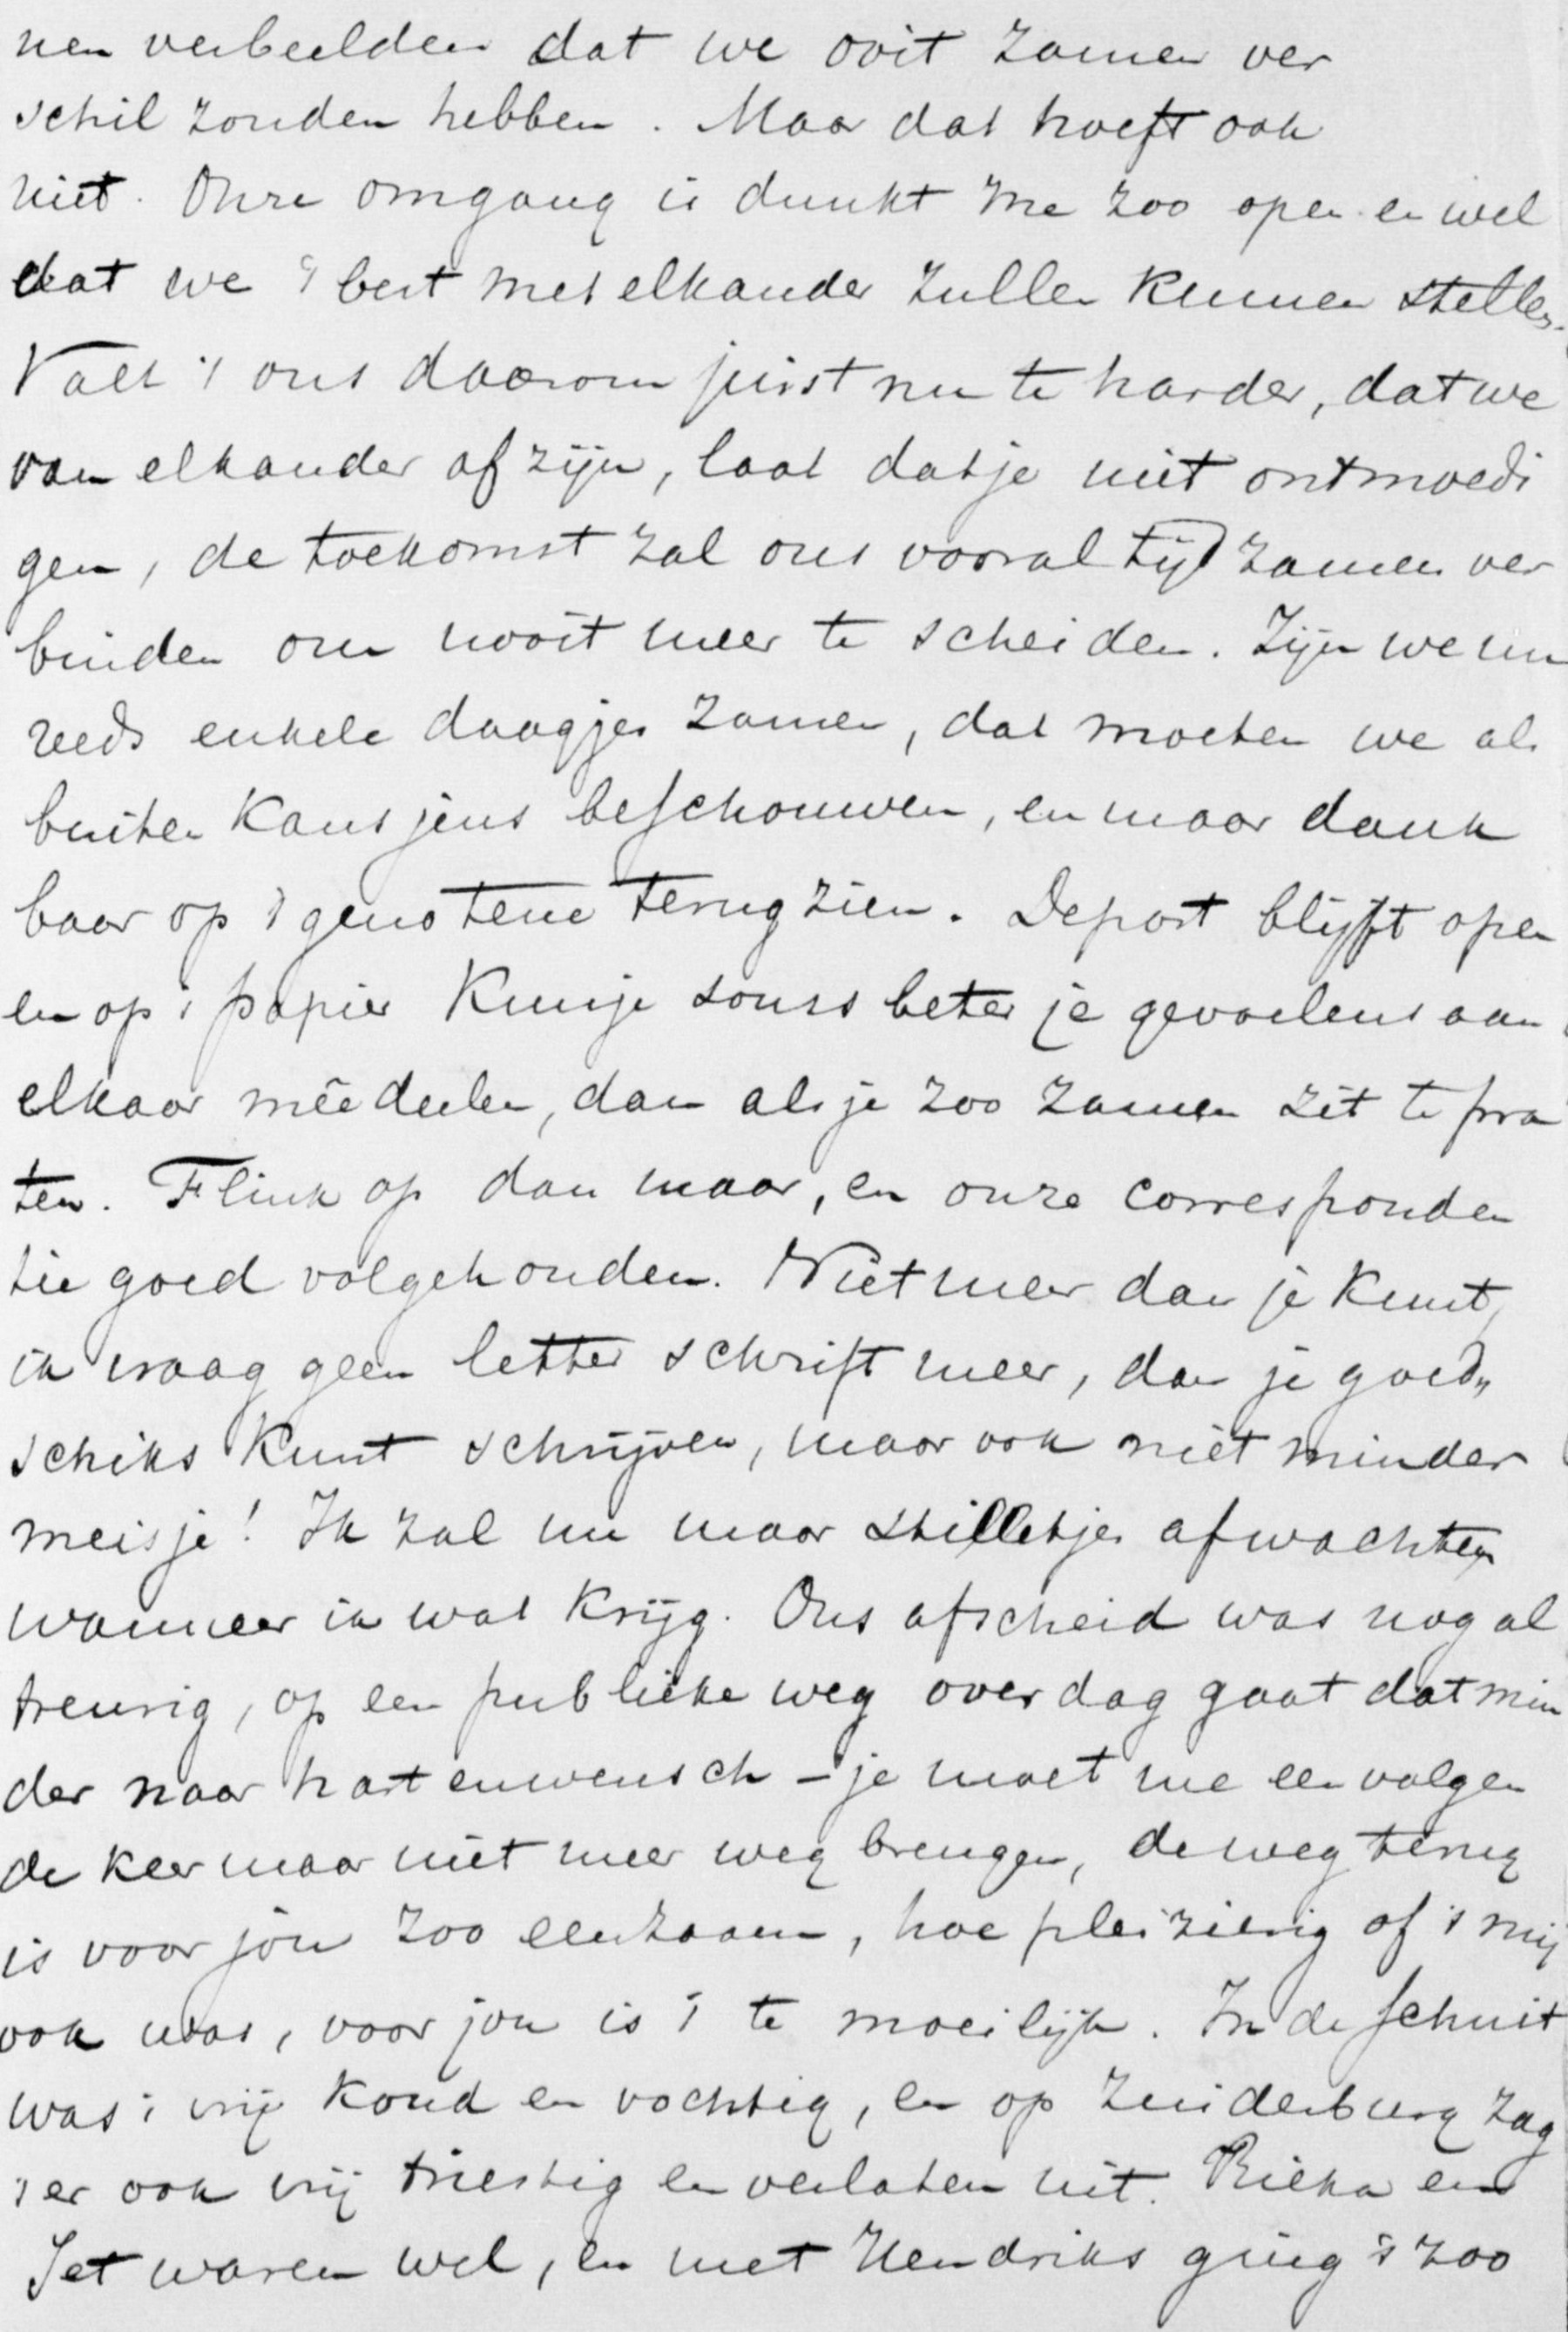 nen verbeelden dat we ooit zamen ver
schil zouden hebben. Maar dat hoeft ook
niet. Onze omgang is dunkt me zoo open en wel
dat we 't best met elkander zullen kunnen stellen.
Valt 't ons daarom juist nu te harder, dat we
van elkander af zijn, laat dat je niet ontmoedi
gen, de toekomst zal ons vooral tijd zamen ver
binden om nooit meer te scheiden. Zijn we nu
reeds enkele daagjes zamen, dat moeten we als
buiten kansjens beschouwen, en maar dank
baar op 't genotene terug zien. De post blijft open
en op 't papier kun je soms beter je gevoelens aan
elkaar mêedeelen, dan als je zoo zamen zit te pra
ten. Flink op dan maar, en onze corresponden
tie goed volgehouden. Niet meer dan je kunt,
ik vraag geen letter schrift meer, dan je goed„
schiks kunt schrijven, maar ook niet minder
meisje! Ik zal nu maar stilletjes afwachten
wanneer ik wat krijg. Ons afscheid was nog al
treurig, op een publieke weg over dag gaat dat min
der naar hartenwensch – je moet me een volgen
de keer maar niet meer weg brengen, de weg terug
is voor jou zoo eenzaam, hoe pleizierig of 't mij
ook was, voor jou is 't te moeilijk. In de schuit
was 't vrij koud en vochtig, en op Zuiderburg zag
't er ook vrij triestig en verlaten uit. Rieka en
Jet waren wel, en met Hendriks ging 't zoo